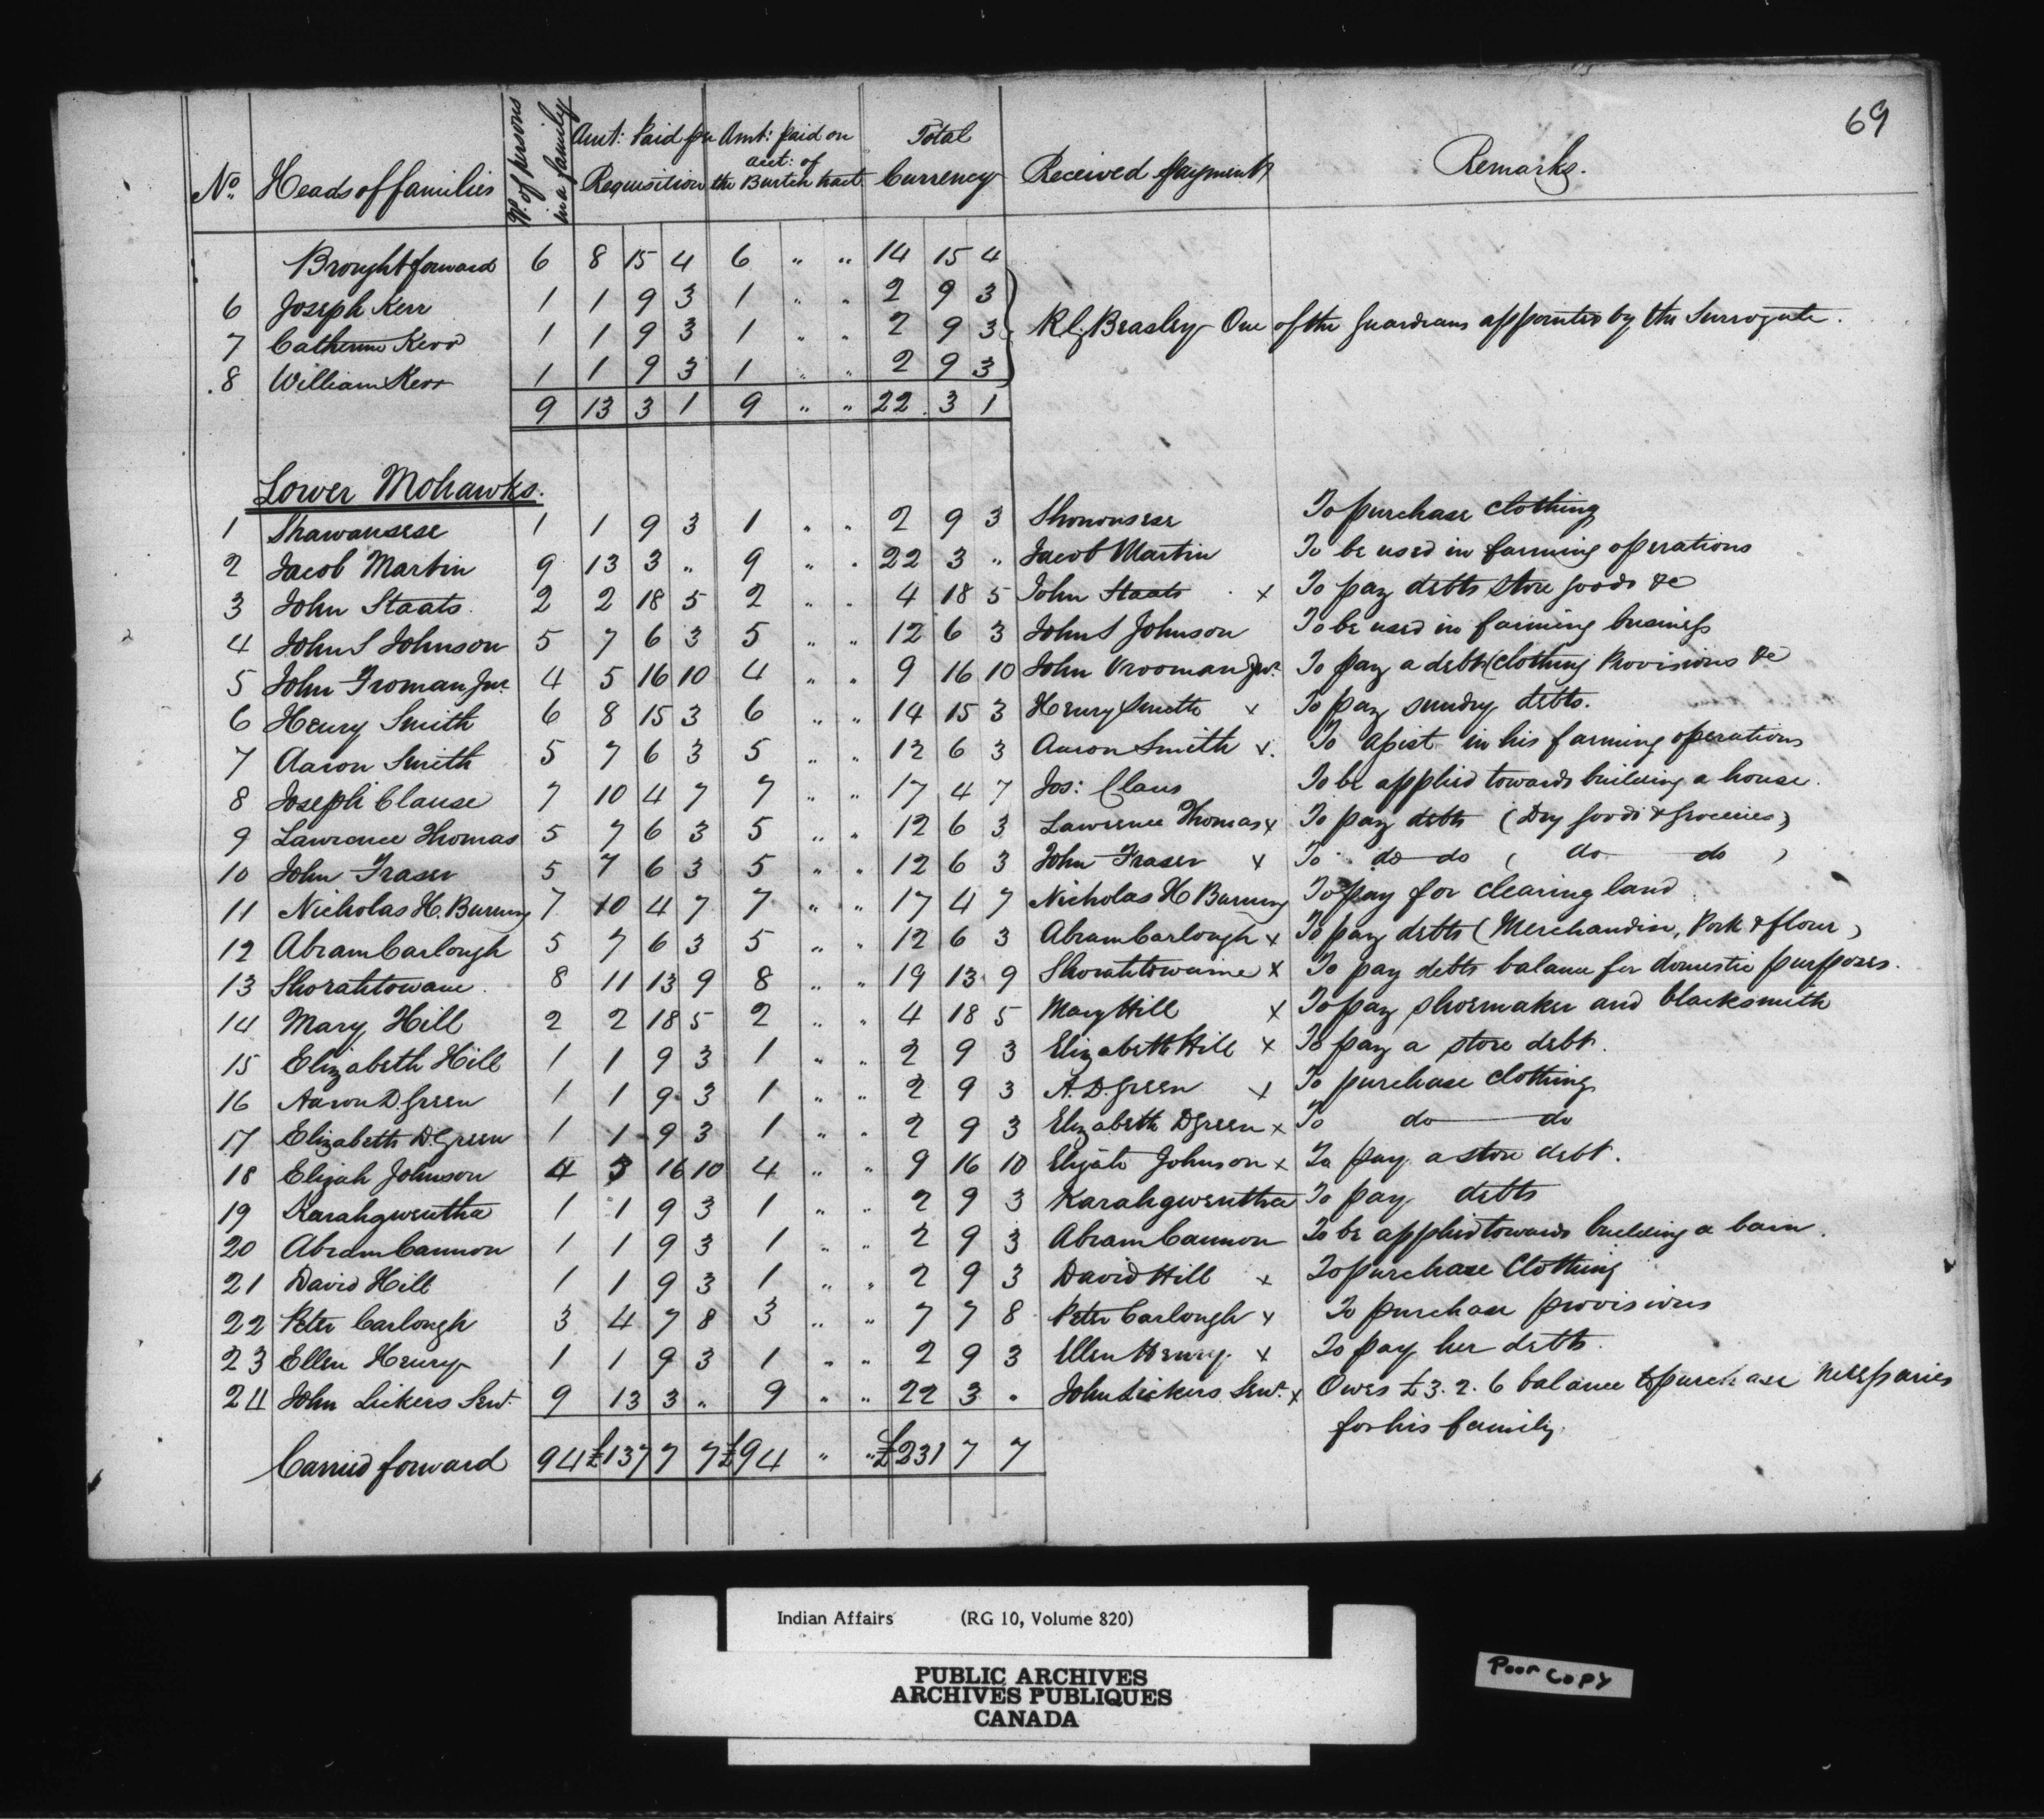 69
No. Heads of families No. of persons in a family Amt: Paid per Requisition Amt: paid on acct: of the Burtch tract Total Currency Received payment Remarks.
Brought forward 6 8 15 4 6 " " 14 15 4
6 Joseph Kerr 1 1 9 3 1 " " 2 9 3
7 Catherine Kerr 1 1 9 3 1 " " 2 9 3 Beasley One of the Guardians appointed by the Surrogate.
8 William Kerr 1 1 9 3 1 " " 2 9 3
9 13 3 1 9 " " 22 3 1
Lower Mohawks.
1 Shawansese 1 1 9 3 1 " " 2 9 3 Shononsese To purchase clothing
2 Jacob Martin 9 13 3 " 9 " " 22 3 " Jacob Martin To be used in farming operations
3 John Staats 2 2 18 5 2 " " 4 18 5 John Staats x To pay debts store goods &c
4 John S Johnson 5 7 6 3 5 " " 12 6 3 John S Johnson To be used in farming business
5 John Froman Jnr. 4 5 16 10 4 " " 9 16 10 John Vrooman Jnr. To pay a debt (clothing Provisions &c
6 Henry Smith 6 8 15 3 6 " " 14 15 3 Henry Smith x To pay sundry debts.
7 Aaron Smith 5 7 6 3 5 " " 12 6 3 Aaron Smith x. To assist in his farming operations
8 Joseph Clause 7 10 4 7 7 " " 17 4 7 Jos: Claus To be applied towards building a house.
9 Lawrence Thomas 5 7 6 3 5 " " 12 6 3 Lawrence Thomas x To pay debts (Dry goods & Groceries)
10 John Fraser 5 7 6 3 5 " " 12 6 3 John Fraser x To do do ( do do )
11 Nicholas H. Burning 7 10 4 7 7 " " 17 4 7 Nicholas H Burning To pay for clearing land
12 Abram Carlough 5 7 6 3 5 " " 12 6 3 Abram Carlough x To pay debts (Merchandise, Pork & flour)
13 Shorahtowane 8 11 13 9 8 " " 19 13 9 Shorahtowaine x To pay debts balance for domestic purposes.
14 Mary Hill 2 2 18 5 2 " " 4 18 5 Mary Hill x To pay shoemaker and blacksmith
15 Elizabeth Hill 1 1 9 3 1 " " 2 9 3 Elizabeth Hill x To pay a store debt.
16 Aaron D. Green 1 1 9 3 1 " " 2 9 3 A. D. Green x To purchase clothing
17 Elizabeth D. Green 1 1 9 3 1 " " 2 9 3 Elizabeth D Green x To do do
18 Elijah Johnson 4 5 16 10 4 " " 9 16 10 Elijah Johnson x To pay a store debt.
19 Karahgwentha 1 1 9 3 1 " " 2 9 3 Karahgwentha To pay debts
20 Abram Cannon 1 1 9 3 1 " " 2 9 3 Abram Cannon To be applied towards building a barn.
21 David Hill 1 1 9 3 1 " " 2 9 3 David Hill x To purchase Clothing
22 Peter Carlough 3 4 7 8 3 " " 7 7 8 Peter Carlough x To purchase provisions
23 Ellen Henry 1 1 9 3 1 " " 2 9 3 Ellen Henry x To pay her debts.
24 John Lickers Senr. 9 13 3 " 9 " " 22 3 " John Lickers Senr. x Owes £3. 2. 6 balance to purchase necessaries
for his family.
Carried forward 94 £137 7 7 £94 " " £231 7 7
Indian Affairs (RG 10, Volume 820)
PUBLIC ARCHIVES
ARCHIVES PUBLIQUES
CANADA
Poor Copy